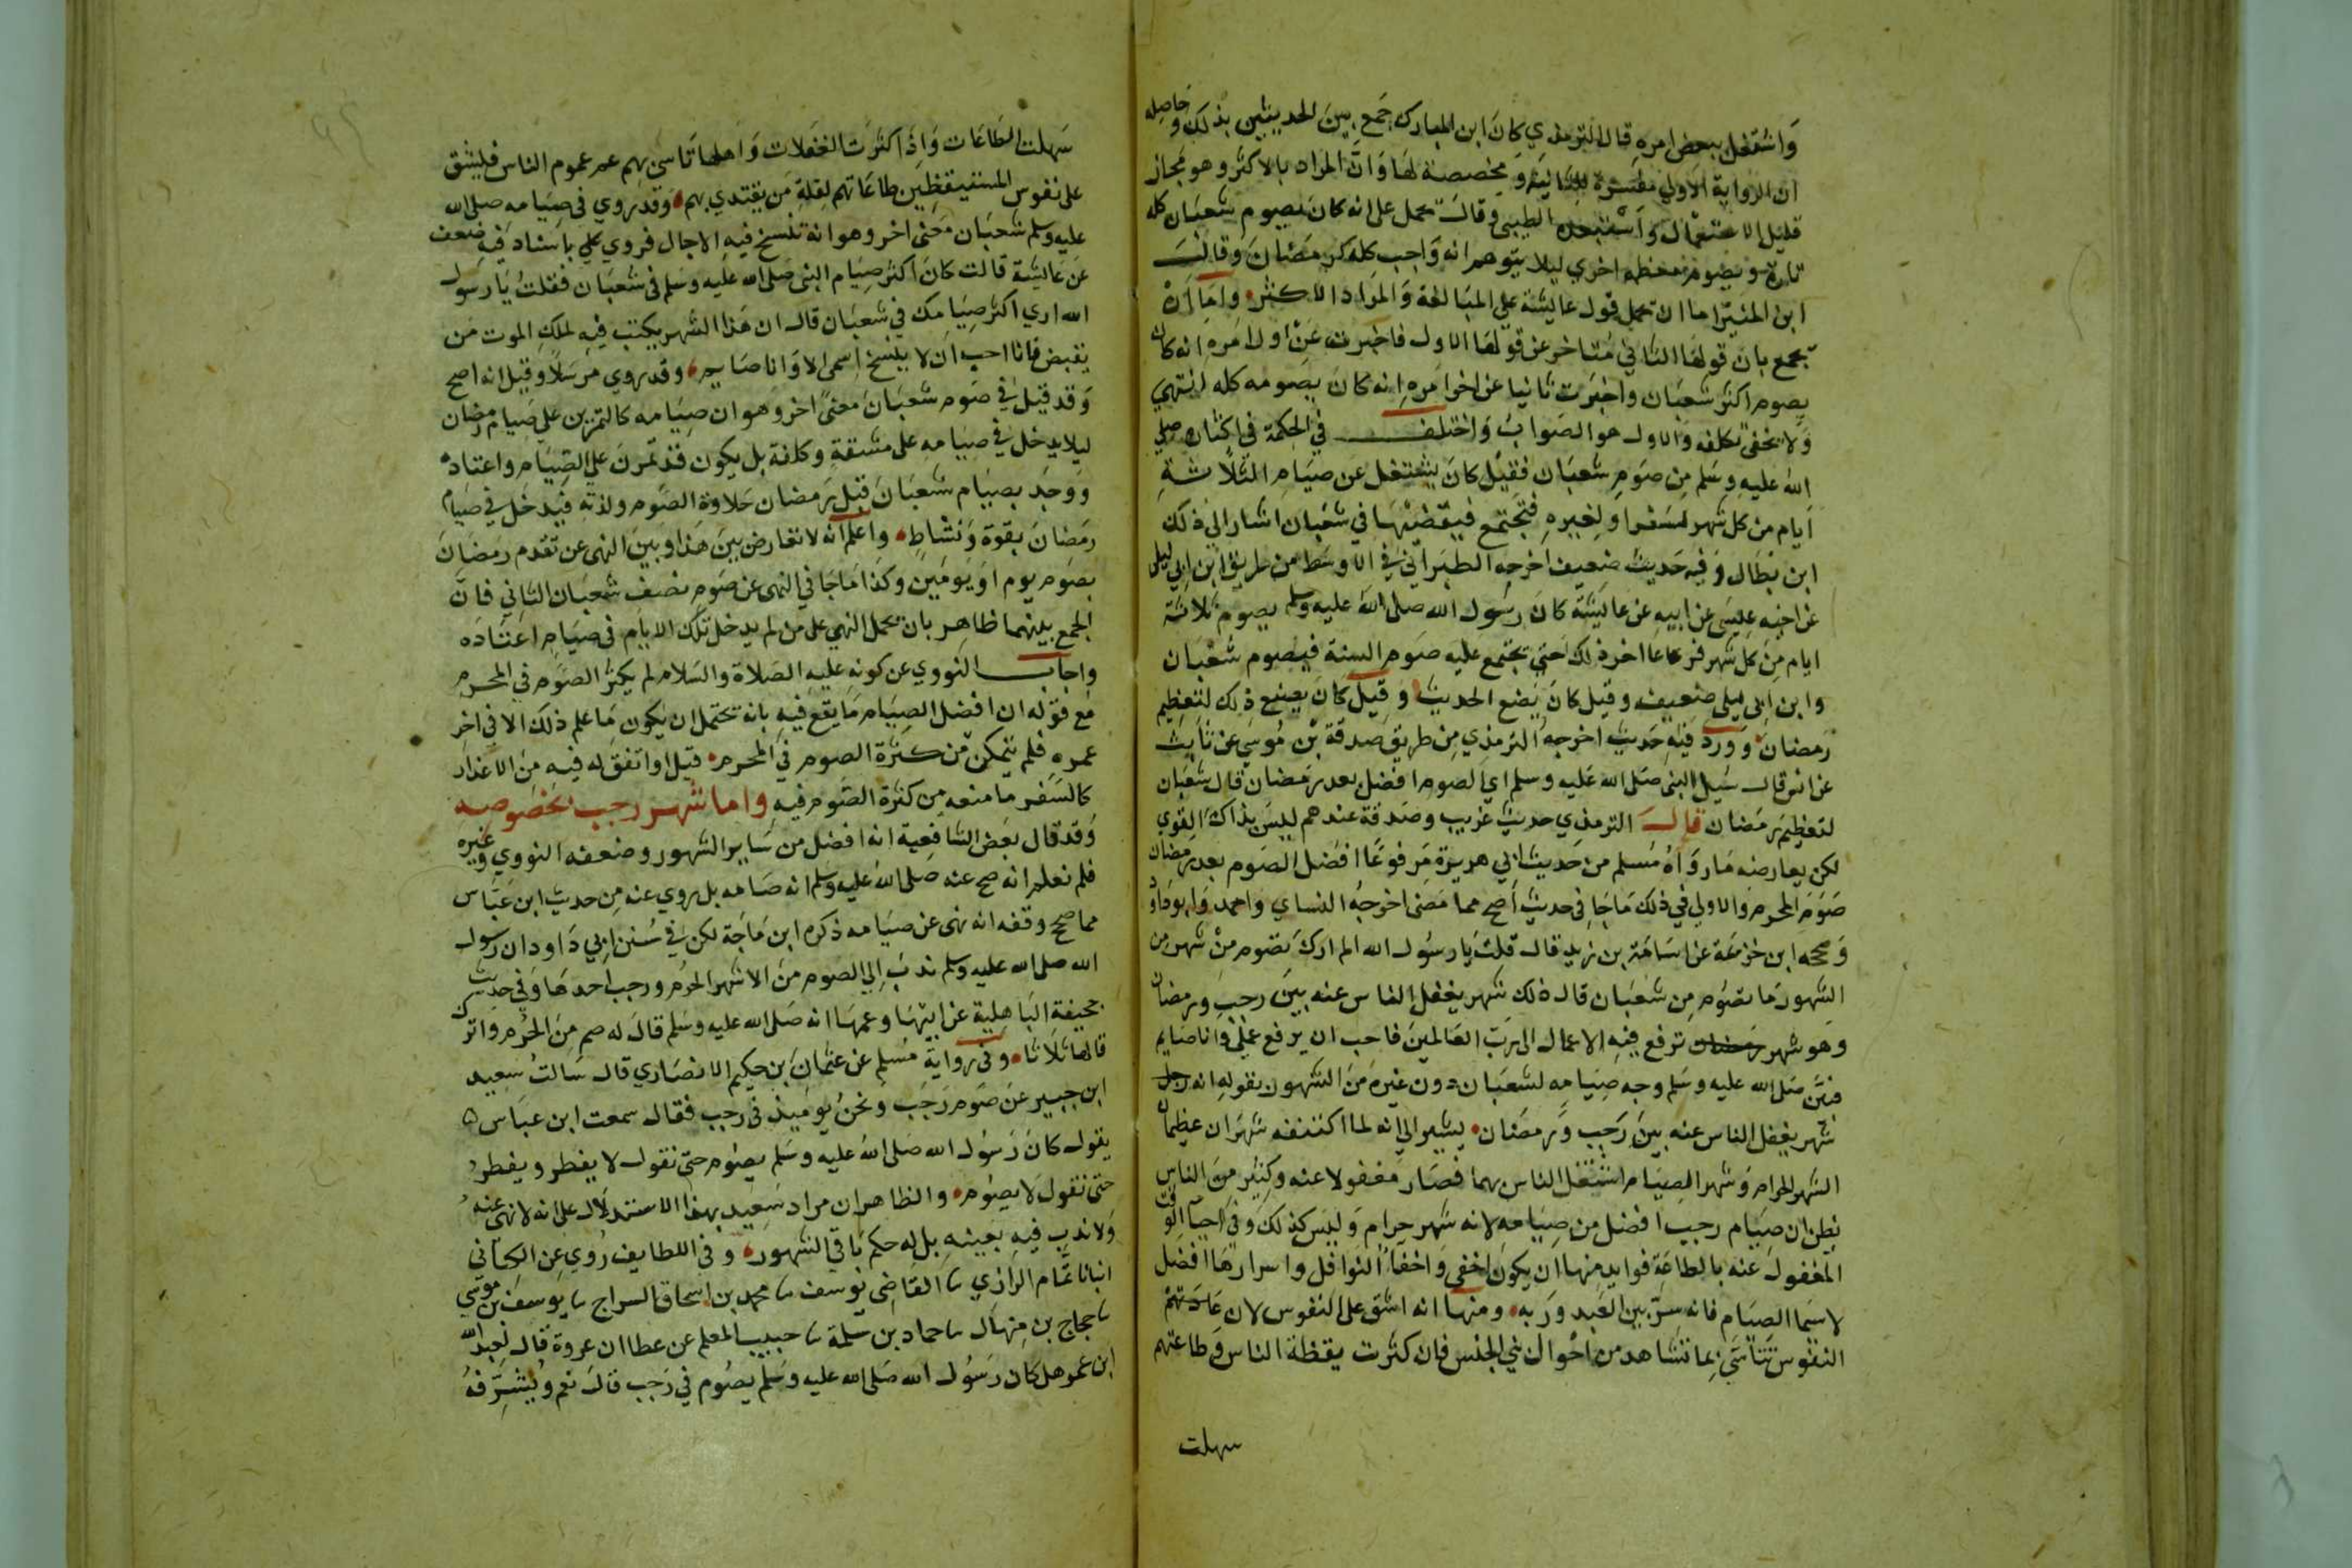 واشتغل ببعض امره قال الترمذي كان ابن المبارك جمع بين الحديثين بذلك وحاصله
ان الرواية الاولي مفسرة للثانية ومخصصة لها وان المراد بالاكثر وهو مجاز
قليل الاستعمال واستبعده الطيبي وقال يحمل على انه كان يصوم شعبان كله
تارة ويصوم معظمه اخري ليلا يتوهم انه واجب كله كرمضان وقال
ابن المنير اما ان يحمل قول عايشة على المبالغة والمراد الاكثر واما ان
يجمع بان قولها الثاني متاخر عن قولها الاول فاخبرت عن اول امره انه كان
يصوم اكثر شعبان واخبرت ثانيا عن اخر امره انه كان يصومه كله انتهي
ولا يخفي تكلفه والاول هو الصواب واختلف في الحكمة في اكثاره صلي
الله عليه وسلم من صوم شعبان فقيل كان يشتغل عن صيام الثلاثة
ايام من كل شهر لسفر او لغيره فتجتمع فيقضيها في شعبان اشار الي ذلك
ابن بطال وفيه حديث ضعيف اخرجه الطبراني في الاوسط من طريق ابن ابي ليلى
عن اخيه عيسى عن ابيه عن عايشة كان رسول الله صلى الله عليه وسلم يصوم ثلاثة
ايام من كل شهر فربما اخر ذلك حتى يجتمع عليه صوم السنة فيصوم شعبان
وابن ابي ليلى ضعيف وقيل كان يضع الحديث وقيل كان يصنع ذلك لتعظيم
رمضان وورد فيه حديث اخرجه الترمذي من طريق صدقة بن موسى عن ثابت
عن انس قال سيل النبي صلى الله عليه وسلم اي الصوم افضل بعد رمضان قال شعبان
لتعظيم رمضان قال الترمذي حديث غريب وصدقة عندهم ليس بذاك القوي
لكن يعارضه ما رواه مسلم من حديث ابي هريرة مرفوعا افضل الصوم بعد رمضان
صوم المحرم والاولي في ذلك ما جا في حديث اصح مما مضى اخرجه النساي واحمد وابو داود
وصححه ابن خزيمة عن اسامة بن زيد قال قلت يا رسول الله لم ارك تصوم من شهر من
الشهور ما تصوم من شعبان قال ذلك شهر يغفل الناس عنه بين رجب ورمضان
وهو شهر ترفع فيه الاعمال الى رب العالمين فاحب ان يرفع عملي وانا صايم
فبين صلى الله عليه وسلم وجه صيامه لشعبان دون غيره من الشهور بقوله انه
شهر يغفل الناس عنه بين رجب ورمضان يشير الي انه لما اكتنفه شهران عظيمان
الشهر الحرام وشهر الصيام اشتغل الناس بهما فصار مغفولا عنه وكثير من الناس
يظن ان صيام رجب افضل من صيامه لانه شهر حرام وليس كذلك وفي احيا الوقت
المغفول عنه بالطاعة فوايد منها ان يكون اخفى واخفا النوافل واسرارها افضل
لاسيما الصيام فانه سر بين العبد وربه ومنها انه اشق على النفوس لان عادتهم
النفوس تتاسى بما تشاهد من احوال بني الجنس فان كثرت يقظة الناس وطاعتهم
سهلت
سهلت الطاعات واذا كثرت الغفلات واهلها تاسى بهم عموم الناس فليشق
على نفوس المستيقظين طاعاتهم لقلة من يقتدي بهم وقد روي في صيامه صلى الله
عليه وسلم شعبان معنى اخر وهو انه تنسخ فيه الاجال فروي باسناد فيه ضعف
عن عايشة قالت كان اكثر صيام النبي صلى الله عليه وسلم في شعبان فقلت يا رسول
الله اري اكثر صيامك في شعبان قال ان هذا الشهر يكتب فيه لملك الموت من
يقبض فانا احب ان لا ينسخ اسمي الا وانا صايم وقد روي مرسلا وقيل انه اصح
وقد قيل في صوم شعبان معنى اخر وهو ان صيامه كالتمرين على صيام رمضان
ليلا يدخل في صيامه على مشقة وكلفة بل يكون قد تمرن على الصيام واعتاده
ووجد بصيام شعبان قبل رمضان حلاوة الصوم ولذته فيدخل في صيام
رمضان بقوة ونشاط واعلم انه لا تعارض بين هذا وبين النهى عن تقدم رمضان
بصوم يوم او يومين وكذا ما جا في النهى عن صوم نصف شعبان الثاني فان
الجمع بينهما ظاهر بان يحمل النهي على من لم يدخل تلك الايام في صيام اعتاده
واجاب النووي عن كونه عليه الصلاة والسلام لم يكثر الصوم في المحرم
مع قوله ان افضل الصيام ما يقع فيه بانه يحتمل ان يكون ما علم ذلك الا في اخر
عمره فلم يتمكن من كثرة الصوم في المحرم قيل او اتفق له فيه من الاعذار
كالسفر ما منعه من كثرة الصوم فيه واما شهر رجب بخصوصه
وقد قال بعض الشافعية انه افضل من ساير الشهور وضعفه النووي وغيره
فلم نعلم انه صح عنه صلى الله عليه وسلم انه صامه بل روي عنه من حديث ابن عباس
مما صح وقفه انه نهى عن صيامه ذكره ابن ماجة لكن في سنن ابي داود ان رسول
الله صلى الله عليه وسلم ندب الي الصوم من الاشهر الحرم ورجب احدها وفي حديث
مجيفة الباهلية عن ابيها وعمها انه صلى الله عليه وسلم قال له صم من الحرم واترك
قالها ثلاثا وفي رواية مسلم عن عثمان بن حكيم الانصاري قال سالت سعيد
ابن جبير عن صوم رجب ونحن يوميذ في رجب فقال سمعت ابن عباس
يقول كان رسول الله صلى الله عليه وسلم يصوم حتى نقول لا يفطر ويفطر
حتى نقول لا يصوم والظاهر ان مراد سعيد بهذا الاستدلال على انه لا نهى عنه
ولا ندب فيه بعينه بل له حكم باقي الشهور وفي اللطايف روي عن الكتاني
انبانا تمام الرازي القاضى يوسف محمد بن اسحاق السراج يوسف بن موسى
حجاج بن منهال حماد بن سلمة حبيب المعلم عن عطا ان عروة قال لعبد الله
ابن عمر هل كان رسول الله صلى الله عليه وسلم يصوم في رجب قال نعم ويشرفه